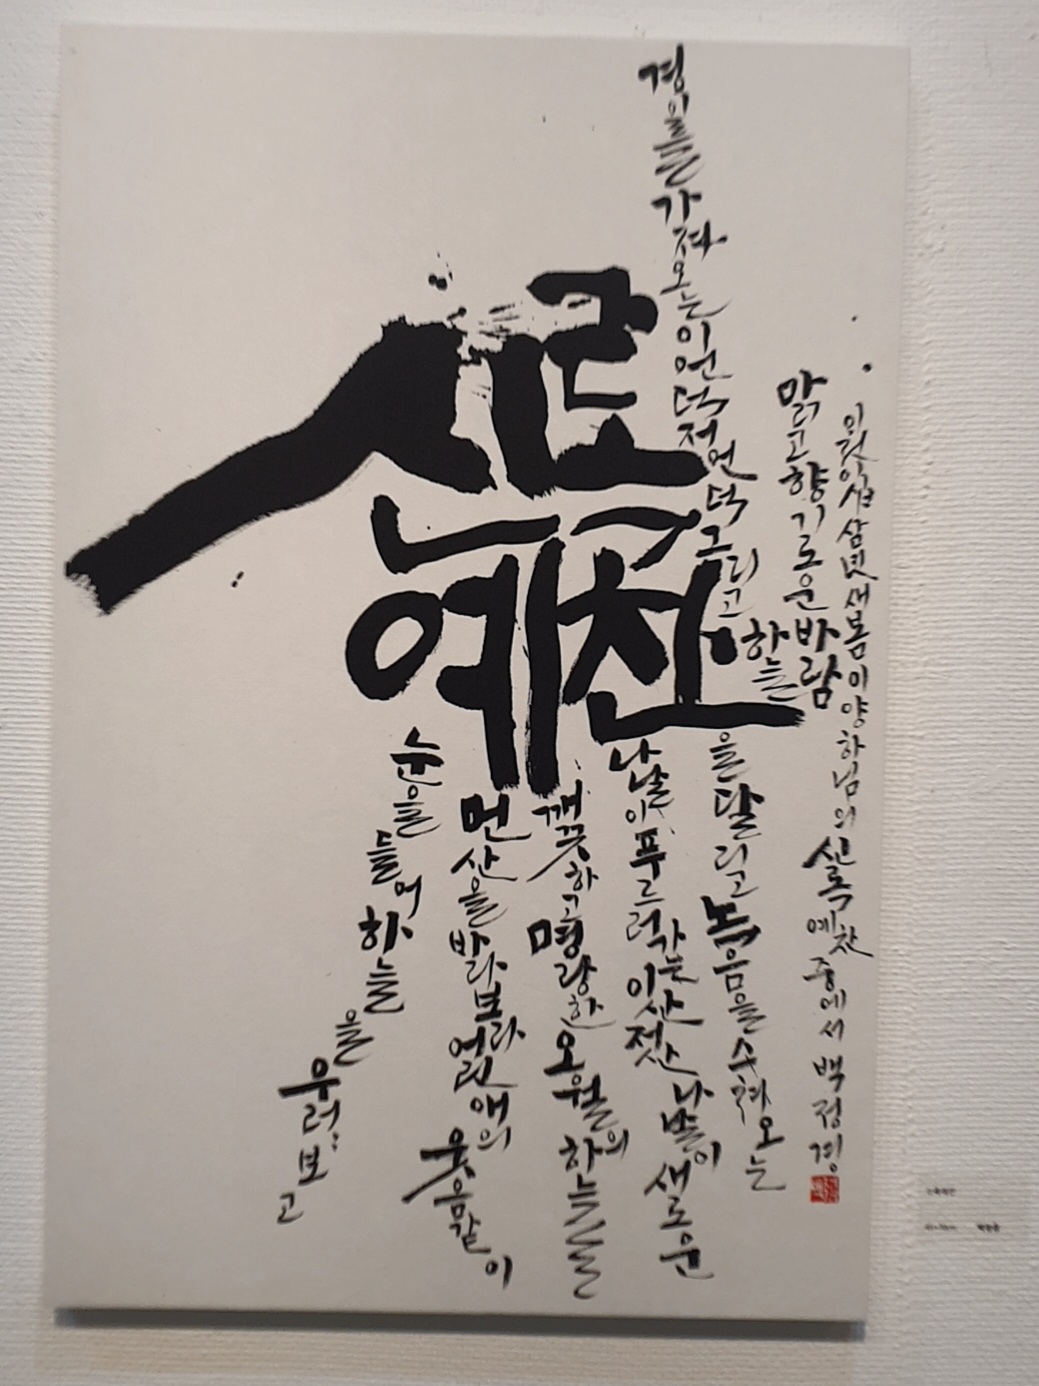 신록
예찬
눈을 들어 하늘을 우러〃보고
먼 산을 바라보라 어린애의 웃음같이
깨끗하고 명랑한 오월의 하늘을
나날이 푸르러가는 이산 저산 나날이 새로운
경이를 가져오는 이 언덕 저 언덕 그리고 하늘을 달리고 녹음을 스쳐오는
맑고 향기로운 바람
이천이십삼년 새봄 이양하님의 신록예찬 중에서 백정경